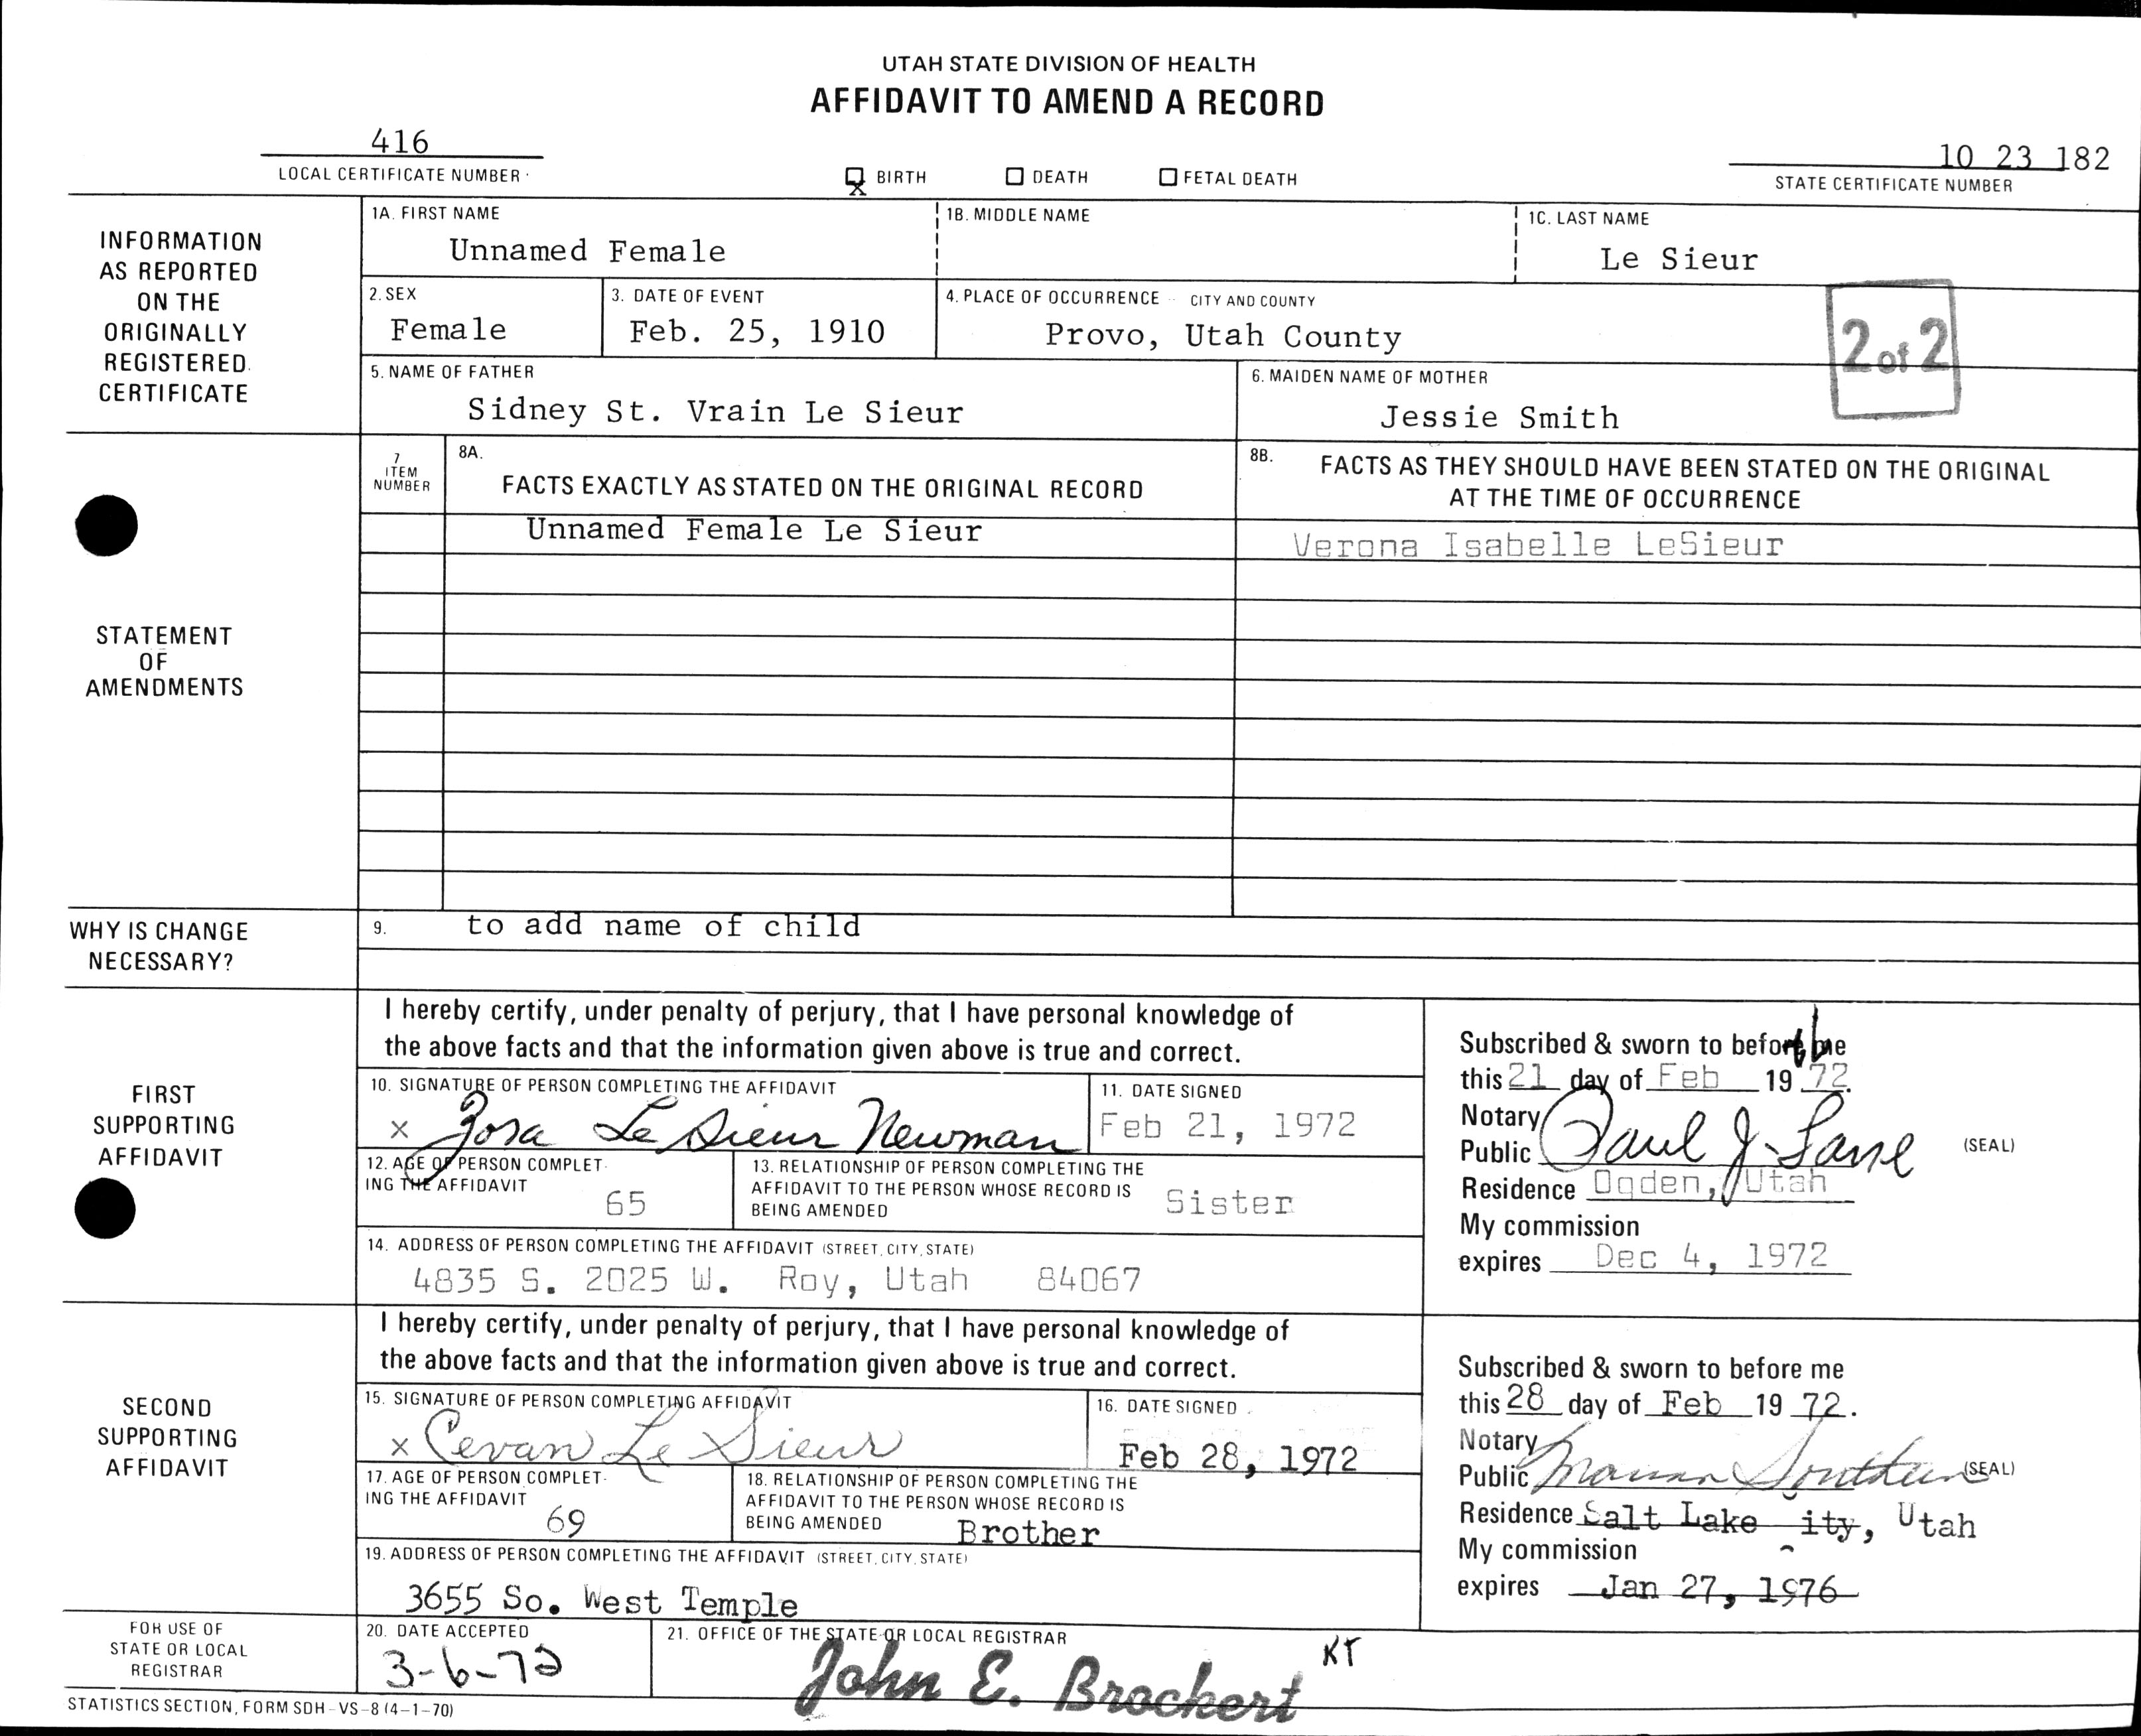 UTAH STATE DIVISION OF HEALTH
AFFIDAVIT TO AMEND A RECORD
416
LOCAL CERTIFICATE NUMBER
X BIRTH
DEATH
FETAL DEATH
10 23 182
STATE CERTIFICATE NUMBER
INFORMATION
AS REPORTED
ON THE
ORIGINALLY
REGISTERED
CERTIFICATE
1A. FIRST NAME
Unnamed Female
1B. MIDDLE NAME
1C. LAST NAME
Le Sieur
2. SEX
Female
3. DATE OF EVENT
Feb. 25, 1910
4. PLACE OF OCCURRENCE - CITY AND COUNTY
Provo, Utah County
2 of 2
5. NAME OF FATHER
Sidney St. Vrain Le Sieur
6. MAIDEN NAME OF MOTHER
Jessie Smith
STATEMENT
OF
AMENDMENTS
7
ITEM
NUMBER
8A.
FACTS EXACTLY AS STATED ON THE ORIGINAL RECORD
8B.
FACTS AS THEY SHOULD HAVE BEEN STATED ON THE ORIGINAL
AT THE TIME OF OCCURRENCE
Unnamed Female Le Sieur
Verona Isabelle LeSieur
WHY IS CHANGE
NECESSARY?
9.
to add name of child
FIRST
SUPPORTING
AFFIDAVIT
I hereby certify, under penalty of perjury, that I have personal knowledge of
the above facts and that the information given above is true and correct.
10. SIGNATURE OF PERSON COMPLETING THE AFFIDAVIT
X Zosa Le Sieur Newman
11. DATE SIGNED
Feb 21, 1972
12. AGE OF PERSON COMPLET-
ING THE AFFIDAVIT
65
13. RELATIONSHIP OF PERSON COMPLETING THE
AFFIDAVIT TO THE PERSON WHOSE RECORD IS
BEING AMENDED
Sister
14. ADDRESS OF PERSON COMPLETING THE AFFIDAVIT (STREET, CITY, STATE)
4835 S. 2025 W. Roy, Utah 84067
Subscribed & sworn to before me
this 21 day of Feb 19 72.
Notary
Public Paul J. (SEAL)
Residence Ogden, Utah
My commission
expires Dec 4, 1972
SECOND
SUPPORTING
AFFIDAVIT
I hereby certify, under penalty of perjury, that I have personal knowledge of
the above facts and that the information given above is true and correct.
15. SIGNATURE OF PERSON COMPLETING AFFIDAVIT
X Cevan Le Sieur
16. DATE SIGNED
Feb 28, 1972
17. AGE OF PERSON COMPLET-
ING THE AFFIDAVIT
69
18. RELATIONSHIP OF PERSON COMPLETING THE
AFFIDAVIT TO THE PERSON WHOSE RECORD IS
BEING AMENDED
Brother
19. ADDRESS OF PERSON COMPLETING THE AFFIDAVIT (STREET, CITY, STATE)
3655 So. West Temple
Subscribed & sworn to before me
this 28 day of Feb 19 72.
Notary
Public (SEAL)
Residence Salt Lake ity, Utah
My commission
expires Jan 27, 1976
FOR USE OF
STATE OR LOCAL
REGISTRAR
20. DATE ACCEPTED
3-6-72
21. OFFICE OF THE STATE OR LOCAL REGISTRAR
John E. Brockert
KT
STATISTICS SECTION, FORM SDH-VS-8 (4-1-70)